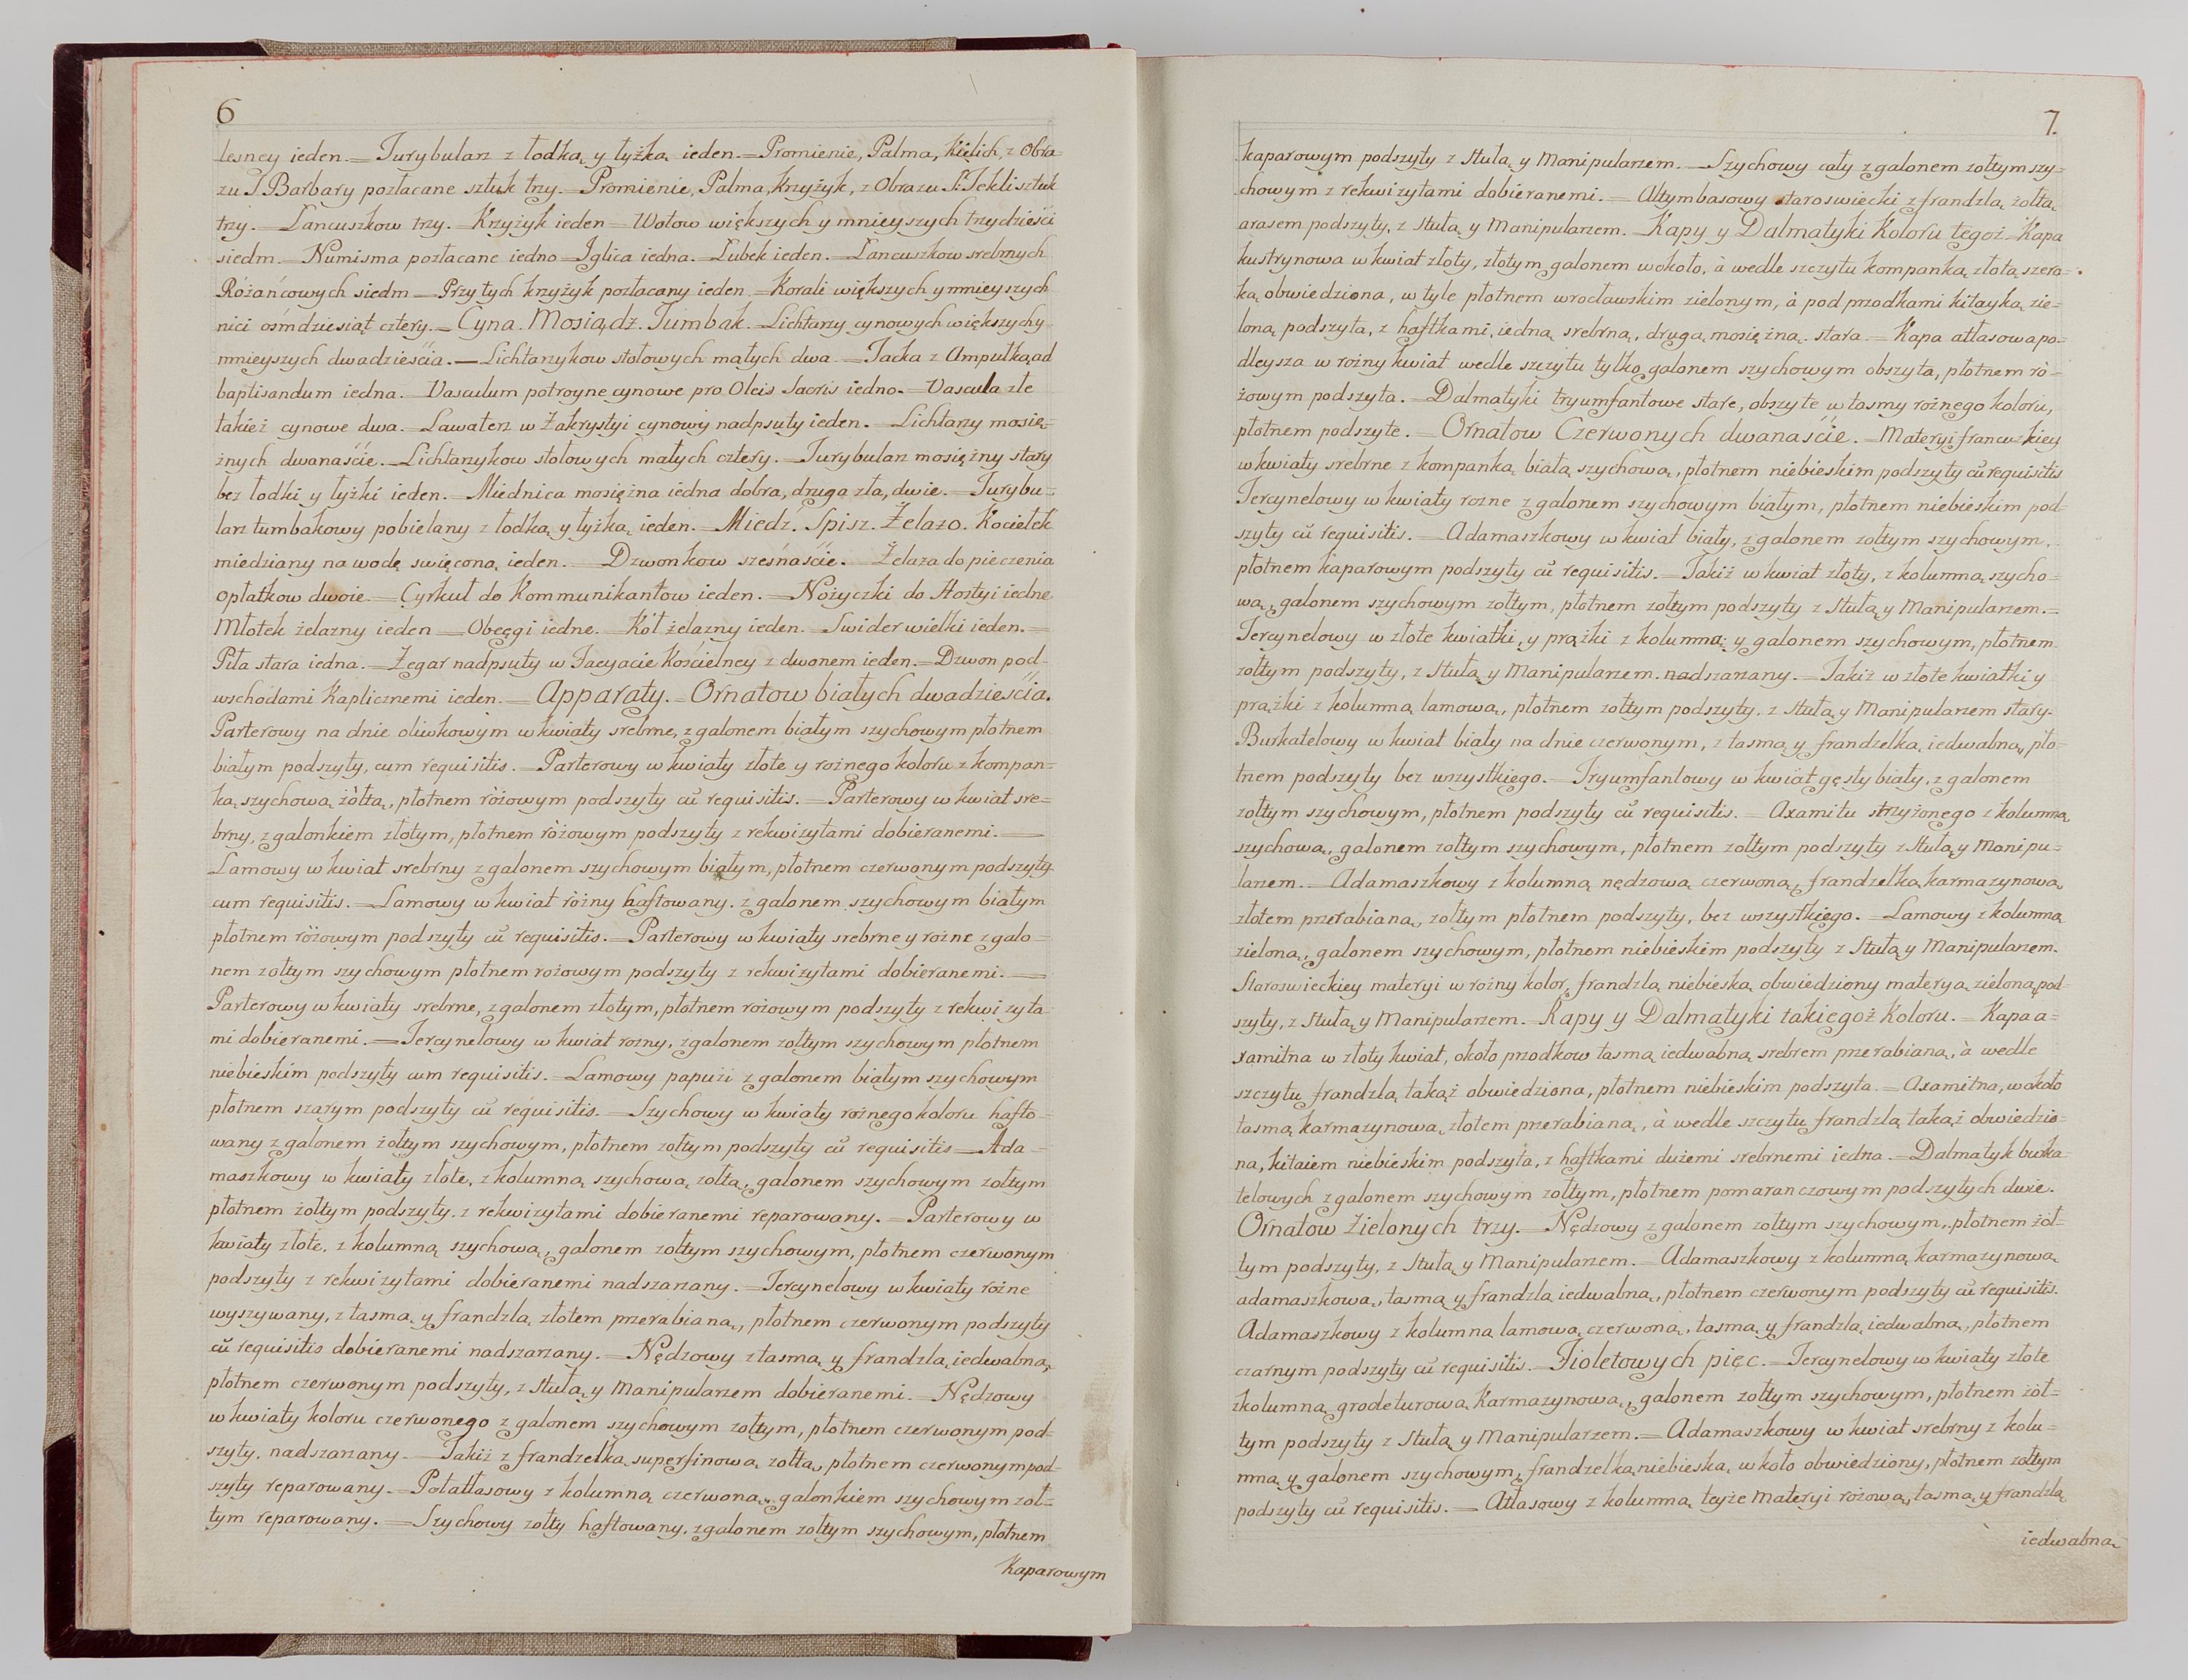 6
lesney ieden. — Turybularz z łodką y łyżką ieden. — Promienie, Palma, Kielich, z Obra-
zu S. Barbary pozłacane sztuk trzy. — Promienie, Palma, Krzyżyk, z Obrazu S. Tekli sztuk
trzy. — Łancuszkow trzy. — Krzyżyk ieden — Wotow większych y mnieyszych trzydzieści
siedm. — Numisma pozłacane iedno — Jglica iedna. — Łubek ieden. — Łancuszkow srebrnych
Różańcowych siedm — Przy tych krzyżyk pozłacany ieden — Korali większych y mnieyszych
nici ośmdziesiąt cztery. — Cyna. Mosiądz. Tumbak. — Lichtarzy cynowych większych y
mnieyszych dwadzieścia. — Lichtarzykow stołowych małych dwa. — Tacka z Ampułką ad
baptisandum iedna. — Vasculum potroyne cynowe pro Oleis Sacris iedno. — Vascula złe
takież cynowe dwa. — Lawaterz w Zakrystyi cynowy nadpsuty ieden. — Lichtarzy mosię-
żnych dwanaście. — Lichtarzykow stołowych małych cztery. — Turybularz mosiężny stary
bez łodki y łyżki ieden. — Miednica mosiężna iedna dobra, druga zła, dwie. — Turybu-
larz tumbakowy pobielany z łodką y łyżką ieden. — Miedz. Spisz. Żelazo. Kociełek
miedziany na wodę swięconą ieden. — Dzwonkow szesnaście. — Żelaza do pieczenia
opłatkow dwoie — Cyrkuł do Kommunikantow ieden. — Nożyczki do Hostyi iedne
Młotek żelazny ieden — Obcęgi iedne. — Kół żelazny ieden. — Swider wielki ieden. —
Piła stara iedna. — Zegar nadpsuty w Facyacie Kościelney z dwonem ieden. — Dzwon pod-
wschodami Kaplicznemi ieden. — Apparaty. — Ornatow białych dwadzieścia.
Parterowy na dnie oliwkowym w kwiaty srebrne, z galonem białym szychowym płotnem
białym podszyty, cum requisitis. — Parterowy w kwiaty złote y rożnego koloru z kompan-
ką szychową żółtą, płotnem różowym podszyty cũ requisitis. — Parterowy w kwiat sre-
brny, z galonkiem złotym, płotnem różowym podszyty z rekwizytami dobieranemi. —
Lamowy w kwiat srebrny z galonem szychowym białym, płotnem czerwonym podszyty
cum requisitis. — Lamowy w kwiat różny haftowany. z galonem szychowym białym
płotnem różowym podszyty cũ requisitis. — Parterowy w kwiaty srebrne y rożne z galo-
nem zołtym szychowym płotnem rożowym podszyty z rekwizytami dobieranemi. —
Parterowy w kwiaty srebrne, z galonem złotym, płotnem rożowym podszyty z rekwizyta-
mi dobieranemi. — Tercynelowy w kwiat rozny, z galonem zołtym szychowym płotnem
niebieskim podszyty cum requisitis. — Lamowy papuzi z galonem białym szychowym
płotnem szarym podszyty cũ requisitis. — Szychowy w kwiaty rożnego koloru hafto-
wany z galonem żołtym szychowym, płotnem zołtym podszyty cũ requisitis — Ada-
maszkowy w kwiaty złote, z kolumną szychową zołtą, galonem szychowym zołtym
płotnem żołtym podszyty. z rekwizytami dobieranemi reparowany. — Parterowy w
kwiaty złote, z kolumną szychową, galonem zołtym szychowym, płotnem czerwonym
podszyty z rekwizytami dobieranemi nadszarzany. — Tercynelowy w kwiaty rożne
wyszywany, z tasmą y frandzlą złotem przerabianą, płotnem czerwonym podszyty
cũ requisitis dobieranemi nadszarzany. — Nędzowy z tasmą y frandzlą iedwabną,
płotnem czerwonym podszyty, z Stułą y Manipularzem dobieranemi. — Nędzowy
w kwiaty koloru czerwonego z galonem szychowym zołtym, płotnem czerwonym pod-
szyty, nadszarzany. — Takiż z frandzelką superfinową zołtą, płotnem czerwonym pod-
szyty reparowany. — Połatłasowy z kolumną czerwoną, galonkiem szychowym zoł-
tym reparowany. — Szychowy zołty haftowany, z galonem zołtym szychowym, płotnem
Kaparowym
7.
kaparowym podszyty z Stułą y Manipularzem. — Szychowy cały z galonem zołtym szy-
chowym z rekwizytami dobieranemi. — Altymbasowy staroswiecki z frandzlą żołtą
arasem podszyty, z Stułą y Manipularzem. — Kapy y Dalmatyki Koloru tegoż — Kapa
kustrynowa w kwiat złoty, złotym galonem wokoło, à wedle szczytu kompanką złotą szero-
ką obwiedziona, w tyle płotnem wrocławskim zielonym, à pod przodkami kitayką zie-
loną podszyta, z haftkami, iedną srebrną, drugą mosiężną. stara. — Kapa atłasowa po-
dleysza w rożny kwiat wedle szczytu tylko galonem szychowym obszyta, płotnem ró-
żowym podszyta. — Dalmatyki tryumfantowe stare, obszyte w tasmy rożnego koloru,
płotnem podszyte. — Ornatow Czerwonych dwanaście. — Materyi francuzkiey
w kwiaty srebrne z kompanką białą szychową, płotnem niebieskim podszyty cũ requisitis
Tercynelowy w kwiaty rozne z galonem szychowym białym, płotnem niebieskim pod-
szyty cũ requisitis. — Adamaszkowy w kwiat biały, z galonem zołtym szychowym,
płotnem kaparowym podszyty cũ requisitis. — Takiż w kwiat złoty, z kolumną szycho-
wą, galonem szychowym zołtym, płotnem zołtym podszyty z Stułą y Manipularzem. —
Tercynelowy w złote kwiatki, y prążki z kolumną y galonem szychowym, płotnem
zołtym podszyty, z Stułą y Manipularzem. nadszarzany. — Takiż w złote kwiatki y
prążki z kolumną lamową, płotnem zołtym podszyty, z Stułą y Manipularzem stary.
Burkatelowy w kwiat biały na dnie czerwonym, z tasmą y frandzelką iedwabną, pło-
tnem podszyty bez wszystkiego. — Tryumfantowy w kwiat gęsty biały, z galonem
zołtym szychowym, płotnem podszyty cũ requisitis. — Axamitu strzyżonego z kolumną
szychową, galonem zołtym szychowym, płotnem zołtym podszyty z Stułą y Manipu-
larzem. — Adamaszkowy z kolumną nędzową czerwoną, frandzelką karmazynową
złotem przerabianą, zołtym płotnem podszyty, bez wszystkiego. — Lamowy z kolumną
zieloną, galonem szychowym, płotnem niebieskim podszyty z Stułą y Manipularzem.
Staroswieckiey materyi w rożny kolor, frandzlą niebieską obwiedziony materyą zieloną pod-
szyty, z Stułą y Manipularzem. — Kapy y Dalmatyki takiegoż Koloru. — Kapa a-
xamitna w złoty kwiat, około przodkow tasmą iedwabną srebrem przerabianą, à wedle
szczytu frandzlą takąż obwiedziona, płotnem niebieskim podszyta. — Axamitna, wokoło
tasmą karmazynową złotem przerabianą, à wedle szczytu frandzlą takąż obwiedzio-
na, kitaiem niebieskim podszyta, z haftkami dużemi srebrnemi iedna. — Dalmatyk burka-
telowych z galonem szychowym zołtym, płotnem pomaranczowym podszytych dwie.
Ornatow Zielonych trzy. — Nędzowy z galonem zołtym szychowym, płotnem żół-
tym podszyty, z Stułą y Manipularzem. — Adamaszkowy z kolumną karmazynową
adamaszkową, tasmą y frandzlą iedwabną, płotnem czerwonym podszyty cũ requisitis.
Adamaszkowy z kolumną lamową czerwoną, tasmą y frandzlą iedwabną, płotnem
czarnym podszyty cũ requisitis. — Fioletowych pięc. — Tercynelowy w kwiaty złote
z kolumną grodeturową Karmazynową, galonem zołtym szychowym, płotnem żół-
tym podszyty z Stułą y Manipularzem. — Adamaszkowy w kwiat srebrny z kolu-
mną y galonem szychowym, frandzelką niebieską w koło obwiedziony, płotnem zołtym
podszyty cũ requisitis. — Atłasowy z kolumną teyże Materyi rożową, tasmą y frandzlą
iedwabną